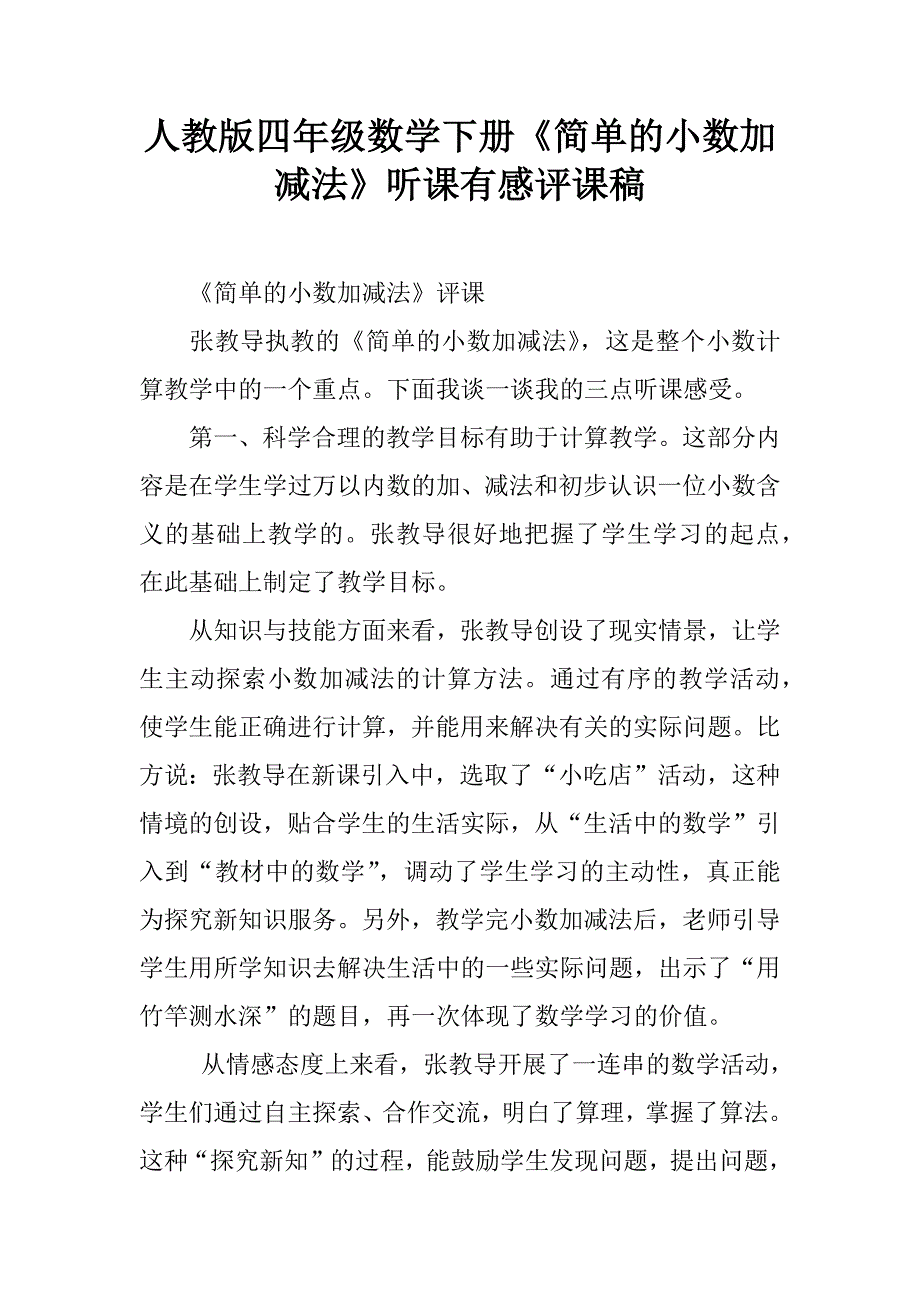 人教版四年级数学下册《简单的小数加
减法》听课有感评课稿
《简单的小数加减法》评课
张教导执教的《简单的小数加减法》，这是整个小数计
算教学中的一个重点。下面我谈一谈我的三点听课感受。
第一、科学合理的教学目标有助于计算教学。这部分内
容是在学生学过万以内数的加、减法和初步认识一位小数含
义的基础上教学的。张教导很好地把握了学生学习的起点，
在此基础上制定了教学目标。
从知识与技能方面来看，张教导创设了现实情景，让学
生主动探索小数加减法的计算方法。通过有序的教学活动，
使学生能正确进行计算，并能用来解决有关的实际问题。比
方说：张教导在新课引入中，选取了“小吃店”活动，这种
情境的创设，贴合学生的生活实际，从“生活中的数学”引
入到“教材中的数学”，调动了学生学习的主动性，真正能
为探究新知识服务。另外，教学完小数加减法后，老师引导
学生用所学知识去解决生活中的一些实际问题，出示了“用
竹竿测水深”的题目，再一次体现了数学学习的价值。
从情感态度上来看，张教导开展了一连串的数学活动，
学生们通过自主探索、合作交流，明白了算理，掌握了算法。
这种“探究新知”的过程，能鼓励学生发现问题，提出问题，